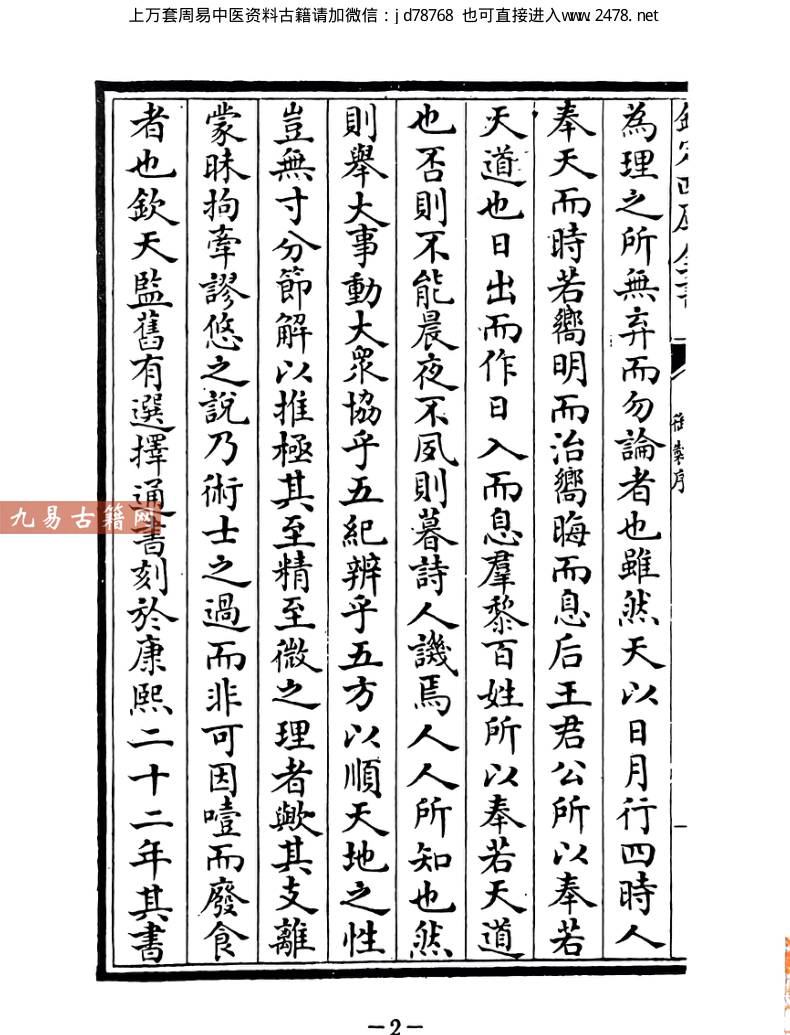 上万套周易中医资料古籍请加微信：jd78768 也可直接进入www.2478.net
御製序
一
為理之所無弃而勿論者也雖然天以日月行四時人
奉天而時若嚮明而治嚮晦而息后王君公所以奉若
天道也日出而作日入而息羣黎百姓所以奉若天道
也否則不能晨夜不夙則暮詩人譏焉人人所知也然
則舉大事動大衆協乎五紀辨乎五方以順天地之性
豈無寸分節解以推極其至精至微之理者歟其支離
蒙昧拘牽謬悠之說乃術士之過而非可因噎而廢食
者也欽天監舊有選擇通書刻於康熙二十二年其書
九易古籍网
－2－